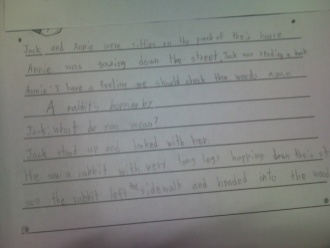 Jack and Annie were sitting on the porch of their house
Annie was gazing down the street, Jack was reading a book
Annie: I have a feeling we should check the woods again
A rabbit's hopping by
Jack: What do you mean?
Jack stood up and looked with her
He saw a rabbit with very long legs hopping down their
the rabbit left the sidewalk and headed into the